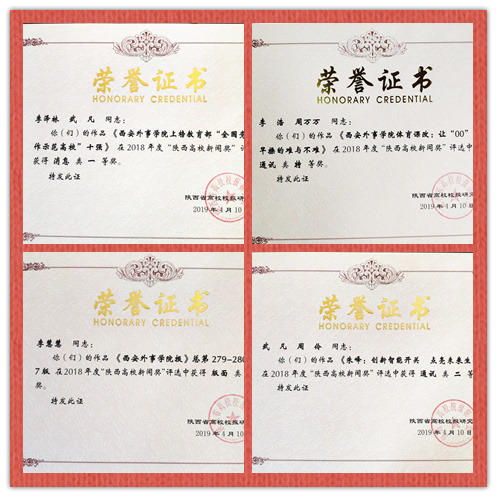 荣誉证书
HONORARY CREDENTIAL
李泽林 武凡 同志：
你（们）的作品《西安外事学院上榜教育部“全国
作示范高校”十强》在2018年度“陕西高校新闻奖”评选中
获得 消息 类 一 等奖。
特发此证
陕西省高校校报研
2019年4月10
荣誉证书
HONORARY CREDENTIAL
李 浩 周万万 同志：
你（们）的作品《西安外事学院体育课改：让“00”
早操的难与不难》在2018年度“陕西高校新闻奖”评选中
通讯 类 特 等奖。
特发此证
陕西省高校校报研究
2019年4月10日
荣誉证书
HONORARY CREDENTIAL
李慧慧 同志：
你（们）的作品《西安外事学院报》总第279-28
7版 在2018年度“陕西高校新闻奖”评选中获得 版面 类
等奖。
特发此证
陕西省高校校报研
2019年4月10
荣誉证书
HONORARY CREDENTIAL
武凡 周伶 同志：
你（们）的作品《张峰：创新智能开关 点亮未来生
在2018年度“陕西高校新闻奖”评选中获得 通讯 类 二 等
奖。
特发此证
陕西省高校校报研究
2019年4月10日